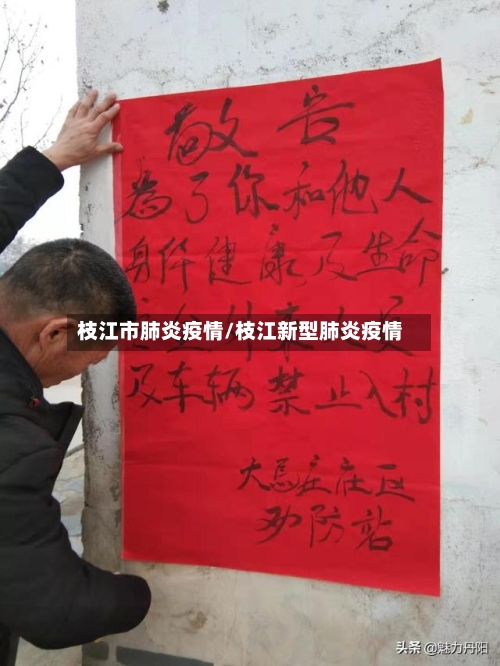 敬告
为了你和他人
身体健康及生命
枝江市肺炎疫情/枝江新型肺炎疫情
及车辆禁止入村
大马庄庄区
防站
头条 @魅力丹阳